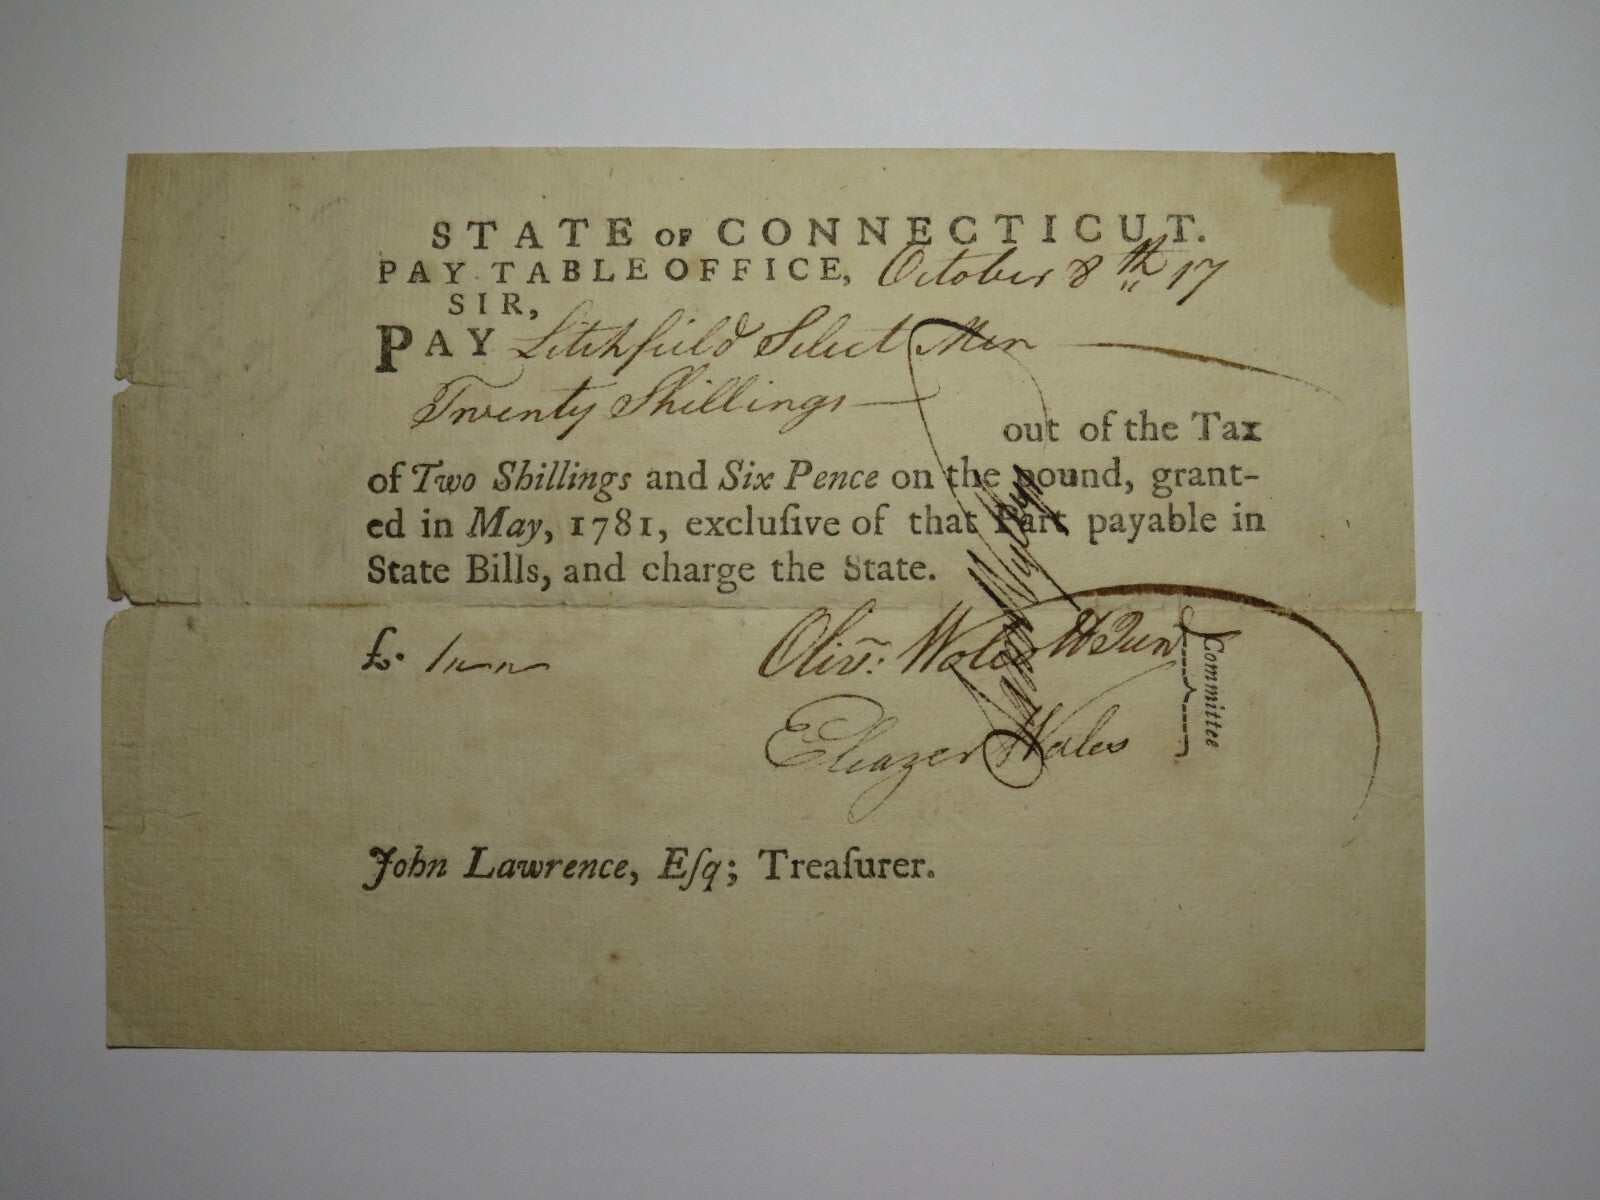 STATE OF CONNECTICUT.
PAY TABLE OFFICE, October 8th 17
SIR,
PAY Litchfield Select Men
Twenty Shillings
out of the Tax
of Two Shillings and Six Pence on the pound, grant-
ed in May, 1781, excluſive of that Part payable in
State Bills, and charge the State.
£.
Olivr: Wolcott Jun
Eleazer Wales
Committee
John Lawrence, Eſq; Treaſurer.